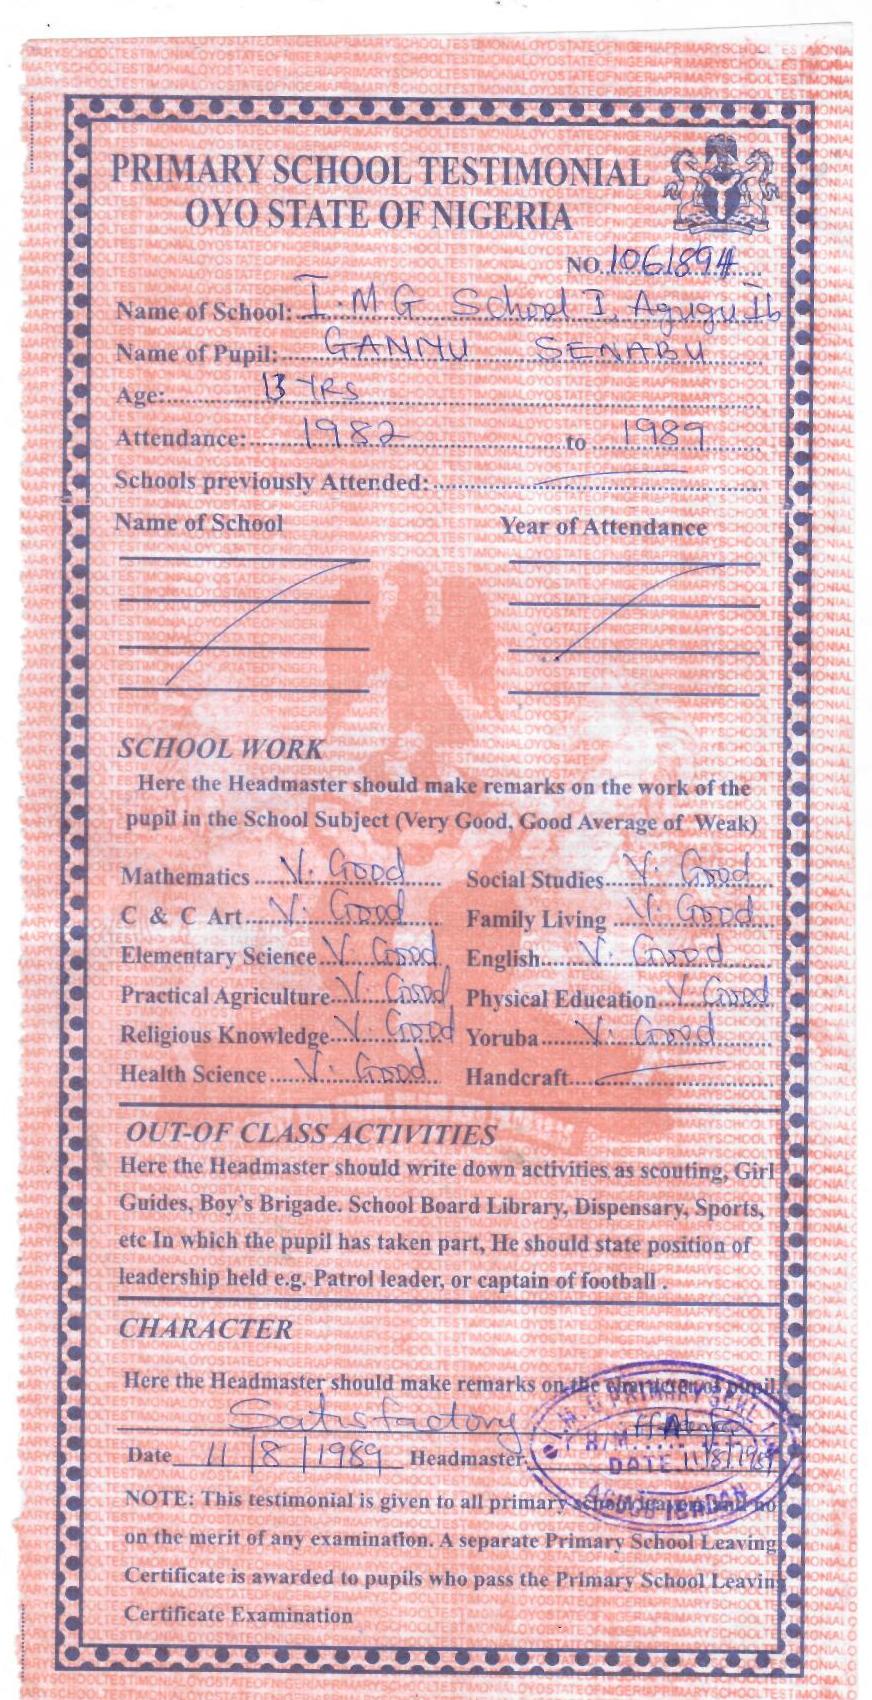 PRIMARY SCHOOL TESTIMONIAL
OYO STATE OF NIGERIA
NO. 1061894
Name of School: I.M.G School I, Agugu Ib
Name of Pupil: GANIYU SENABU
Age: 13 YRS
Attendance: 1982 to 1989
Schools previously Attended:
Name of School Year of Attendance
SCHOOL WORK
Here the Headmaster should make remarks on the work of the
pupil in the School Subject (Very Good, Good Average of Weak)
Mathematics V. Good Social Studies V. Good
C & C Art V. Good Family Living V. Good
Elementary Science V. Good English V. Good
Practical Agriculture V. Good Physical Education V Good
Religious Knowledge V. Good Yoruba V. Good
Health Science V. Good Handcraft
OUT-OF CLASS ACTIVITIES
Here the Headmaster should write down activities as scouting, Girl
Guides, Boy's Brigade. School Board Library, Dispensary, Sports,
etc In which the pupil has taken part, He should state position of
leadership held e.g. Patrol leader, or captain of football .
CHARACTER
Here the Headmaster should make remarks on the character of pupil.
Satisfactory
Date 11/8/1989 Headmaster
DATE 11/8/1989
IBADAN
NOTE: This testimonial is given to all primary school leavers and no
on the merit of any examination. A separate Primary School Leaving
Certificate is awarded to pupils who pass the Primary School Leavin
Certificate Examination